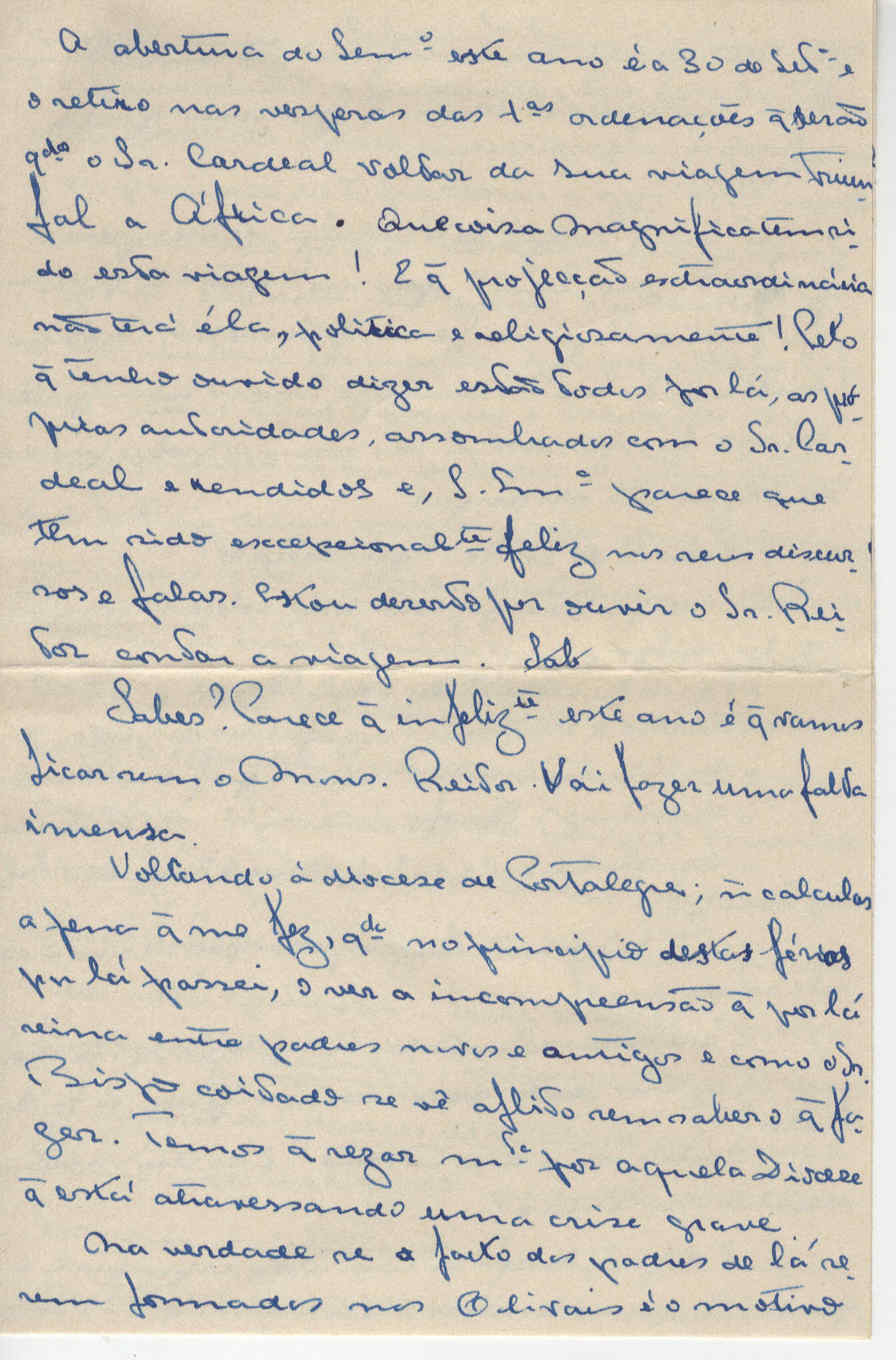 A abertura do Semº este ano é a 30 de Setº e
o retiro nas vesperas das 1ªs ordenações q̃ serão
qdo o Sr. Cardeal voltar da sua viagem triun-
fal a África. Que coisa magnifica tem si-
do esta viagem! E q̃ projecção extraordinária
não terá éla, politica e religiosamente! Pelo
q̃ tenho ouvido dizer estão todos por lá, as pró-
prias autoridades, assombrados com o Sr. Car-
deal e rendidos e, S. Emª parece que
tem sido excepcionalte feliz nos seus discur-
sos e falas. Estou desertο por ouvir o Sr. Rei-
tor contar a viagem. Sab
Sabes? Parece q̃ infelizte este ano é q̃ vamos
ficar sem o Mons. Reitor. Vái fazer uma falta
imensa.
Voltando à diocese de Portalegre; ñ calculas
a pena q̃ me fez, qdo no principio destas férias
por lá passei, o ver a incompreensão q̃ por lá
reina entre padres novos e antigos e como o Sr.
Bispo coitado se vê aflito sem saber o q̃ fa-
zer. Temos q̃ rezar mto por aquela Diocese
q̃ está atravessando uma crise grave
Na verdade se o facto dos padres de lá se-
rem formados nos Olivais é o motivo